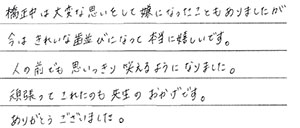 矯正中は大変な思いをして嫌になったこともありましたが
今はきれいな歯並びになって本当に嬉しいです。
人の前でも思いっきり笑えるようになりました。
頑張ってこれたのも先生のおかげです。
ありがとうございました。